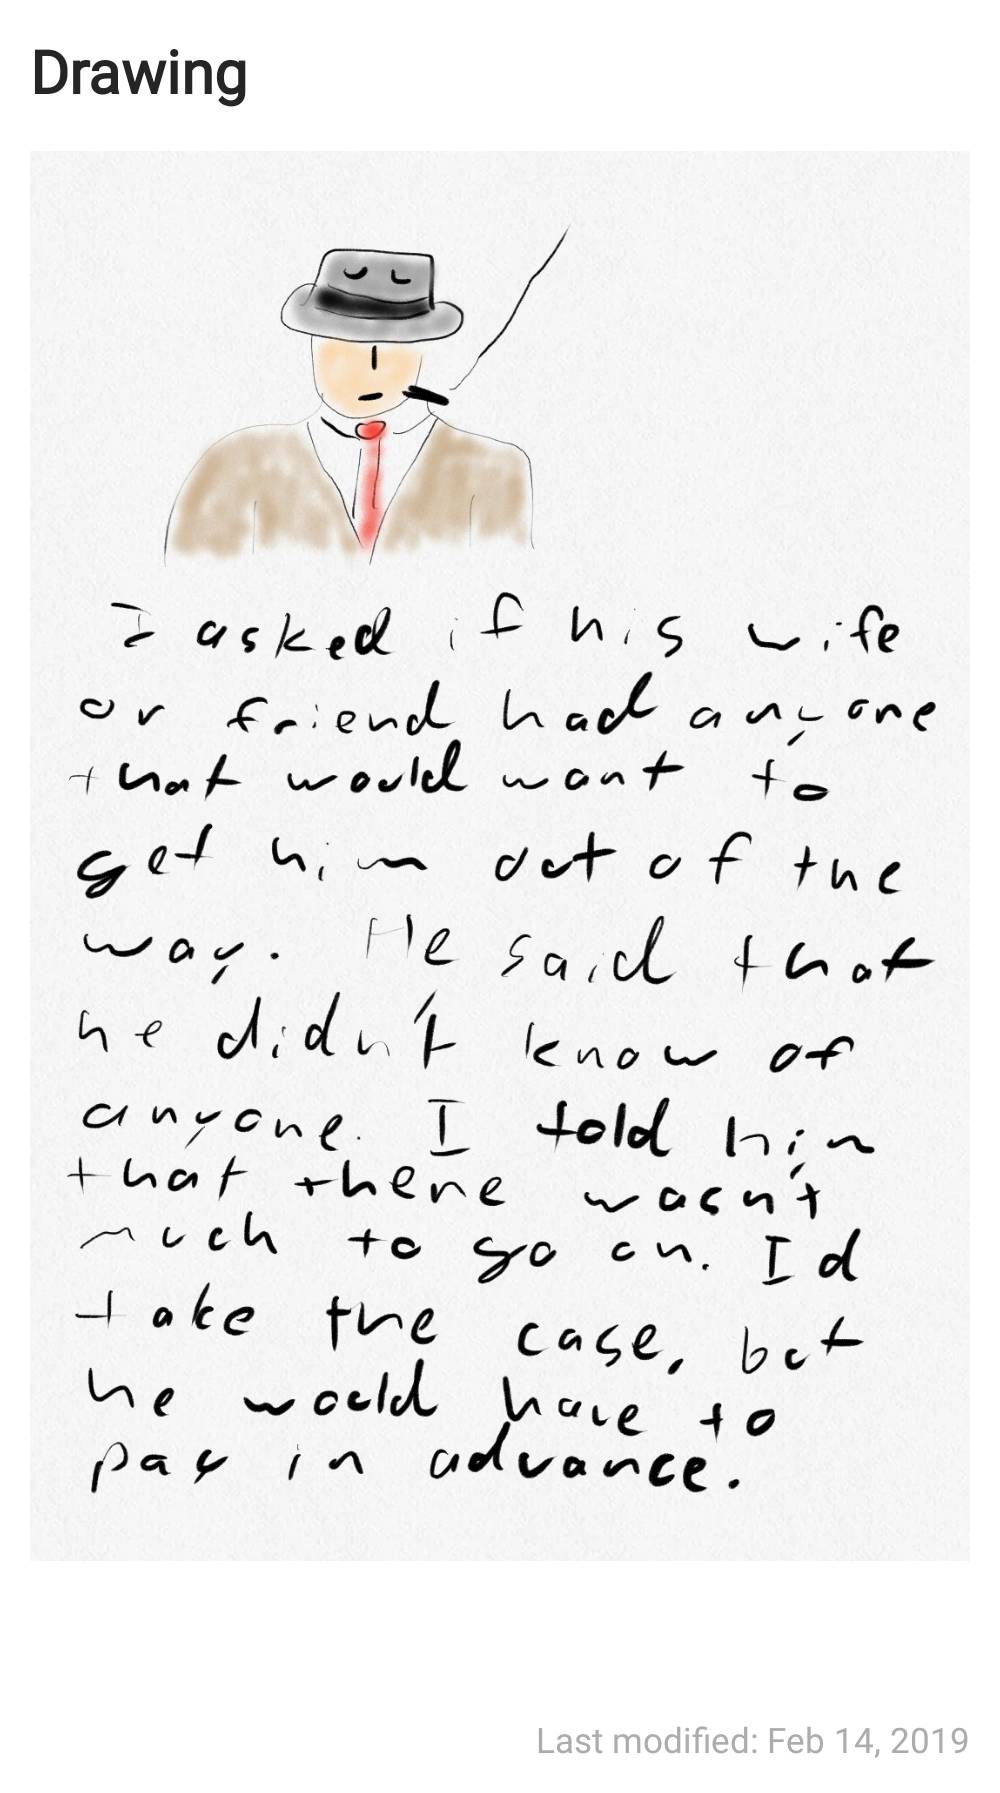 Drawing
I asked if his wife
or friend had anyone
that would want to
get him out of the
way. He said that
he didn't know of
anyone. I told him
that there wasn't
much to go on. I'd
take the case, but
he would have to
pay in advance.
Last modified: Feb 14, 2019